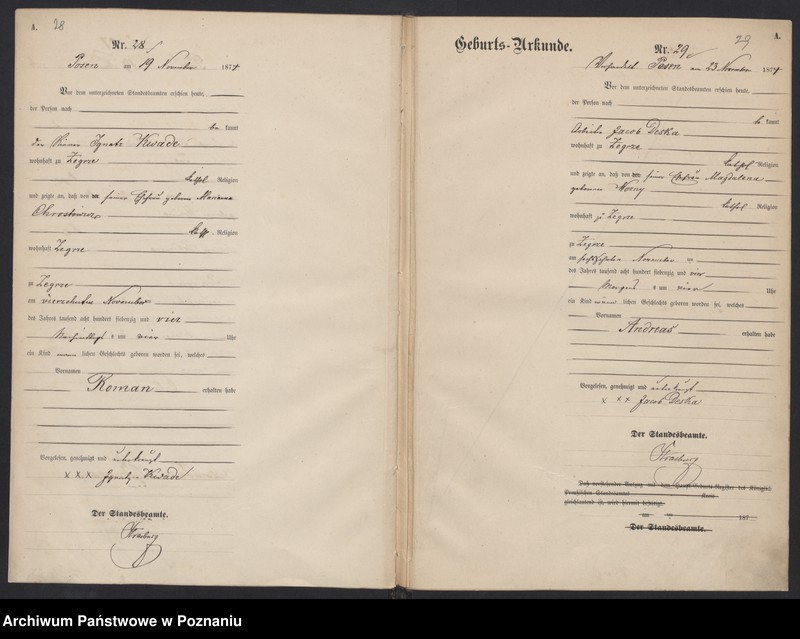 A. 28
Nr. 28
Posen am 19 November 1874
Vor dem unterzeichneten Standesbeamten erschien heute,
der Person nach
be kannt
der Ignatz Kwade
wohnhaft zu Zegrze
kathol Religion
und zeigte an, daß von der seiner Ehefrau geborene Marianna
kath Religion
wohnhaft Zegrze
zu Zegrze
am vierzehnten November
des Jahres tausend acht hundert siebenzig und vier
Nachmittags um vier Uhr
ein Kind männ lichen Geschlechts geboren worden sei, welches
Vornamen
Roman erhalten habe
Vorgelesen, genehmigt und unterkreuzt
x x x Ignatz Kwade
Der Standesbeamte.
Geburts-Urkunde.
29 A.
Nr. 29
Posen am 23. November 1874
Vor dem unterzeichneten Standesbeamten erschien heute,
der Person nach
be kannt
Arbeiter Jacob Deska
wohnhaft zu Zegrze
kathol Religion
und zeigte an, daß von der seiner Ehefrau Magdalena
geborenen
kathol Religion
wohnhaft zu Zegrze
zu Zegrze
am sechszehnten November
des Jahres tausend acht hundert siebenzig und vier
Morgens um vier Uhr
ein Kind männ lichen Geschlechts geboren worden sei, welches
Vornamen
Andreas erhalten habe
Vorgelesen, genehmigt und unterkreuzt
x x x Jacob Deska
Der Standesbeamte.
Daß vorstehender Auszug mit dem Geburts-Register des Königlich
Preußischen Standesamts Kreis
gleichlautend ist, wird hiermit bestätigt.
am 187
Der Standesbeamte.
Archiwum Państwowe w Poznaniu